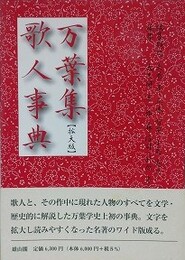 万葉集
歌人事典
【拡大版】
歌人と、その作中に現れた人物のすべてを文学・
歴史的に解説した万葉学史上初の事典。文字を
拡大し読みやすくなった名著のワイド版成る。
雄山閣 定価6,300円（本体6,000円＋税5%）